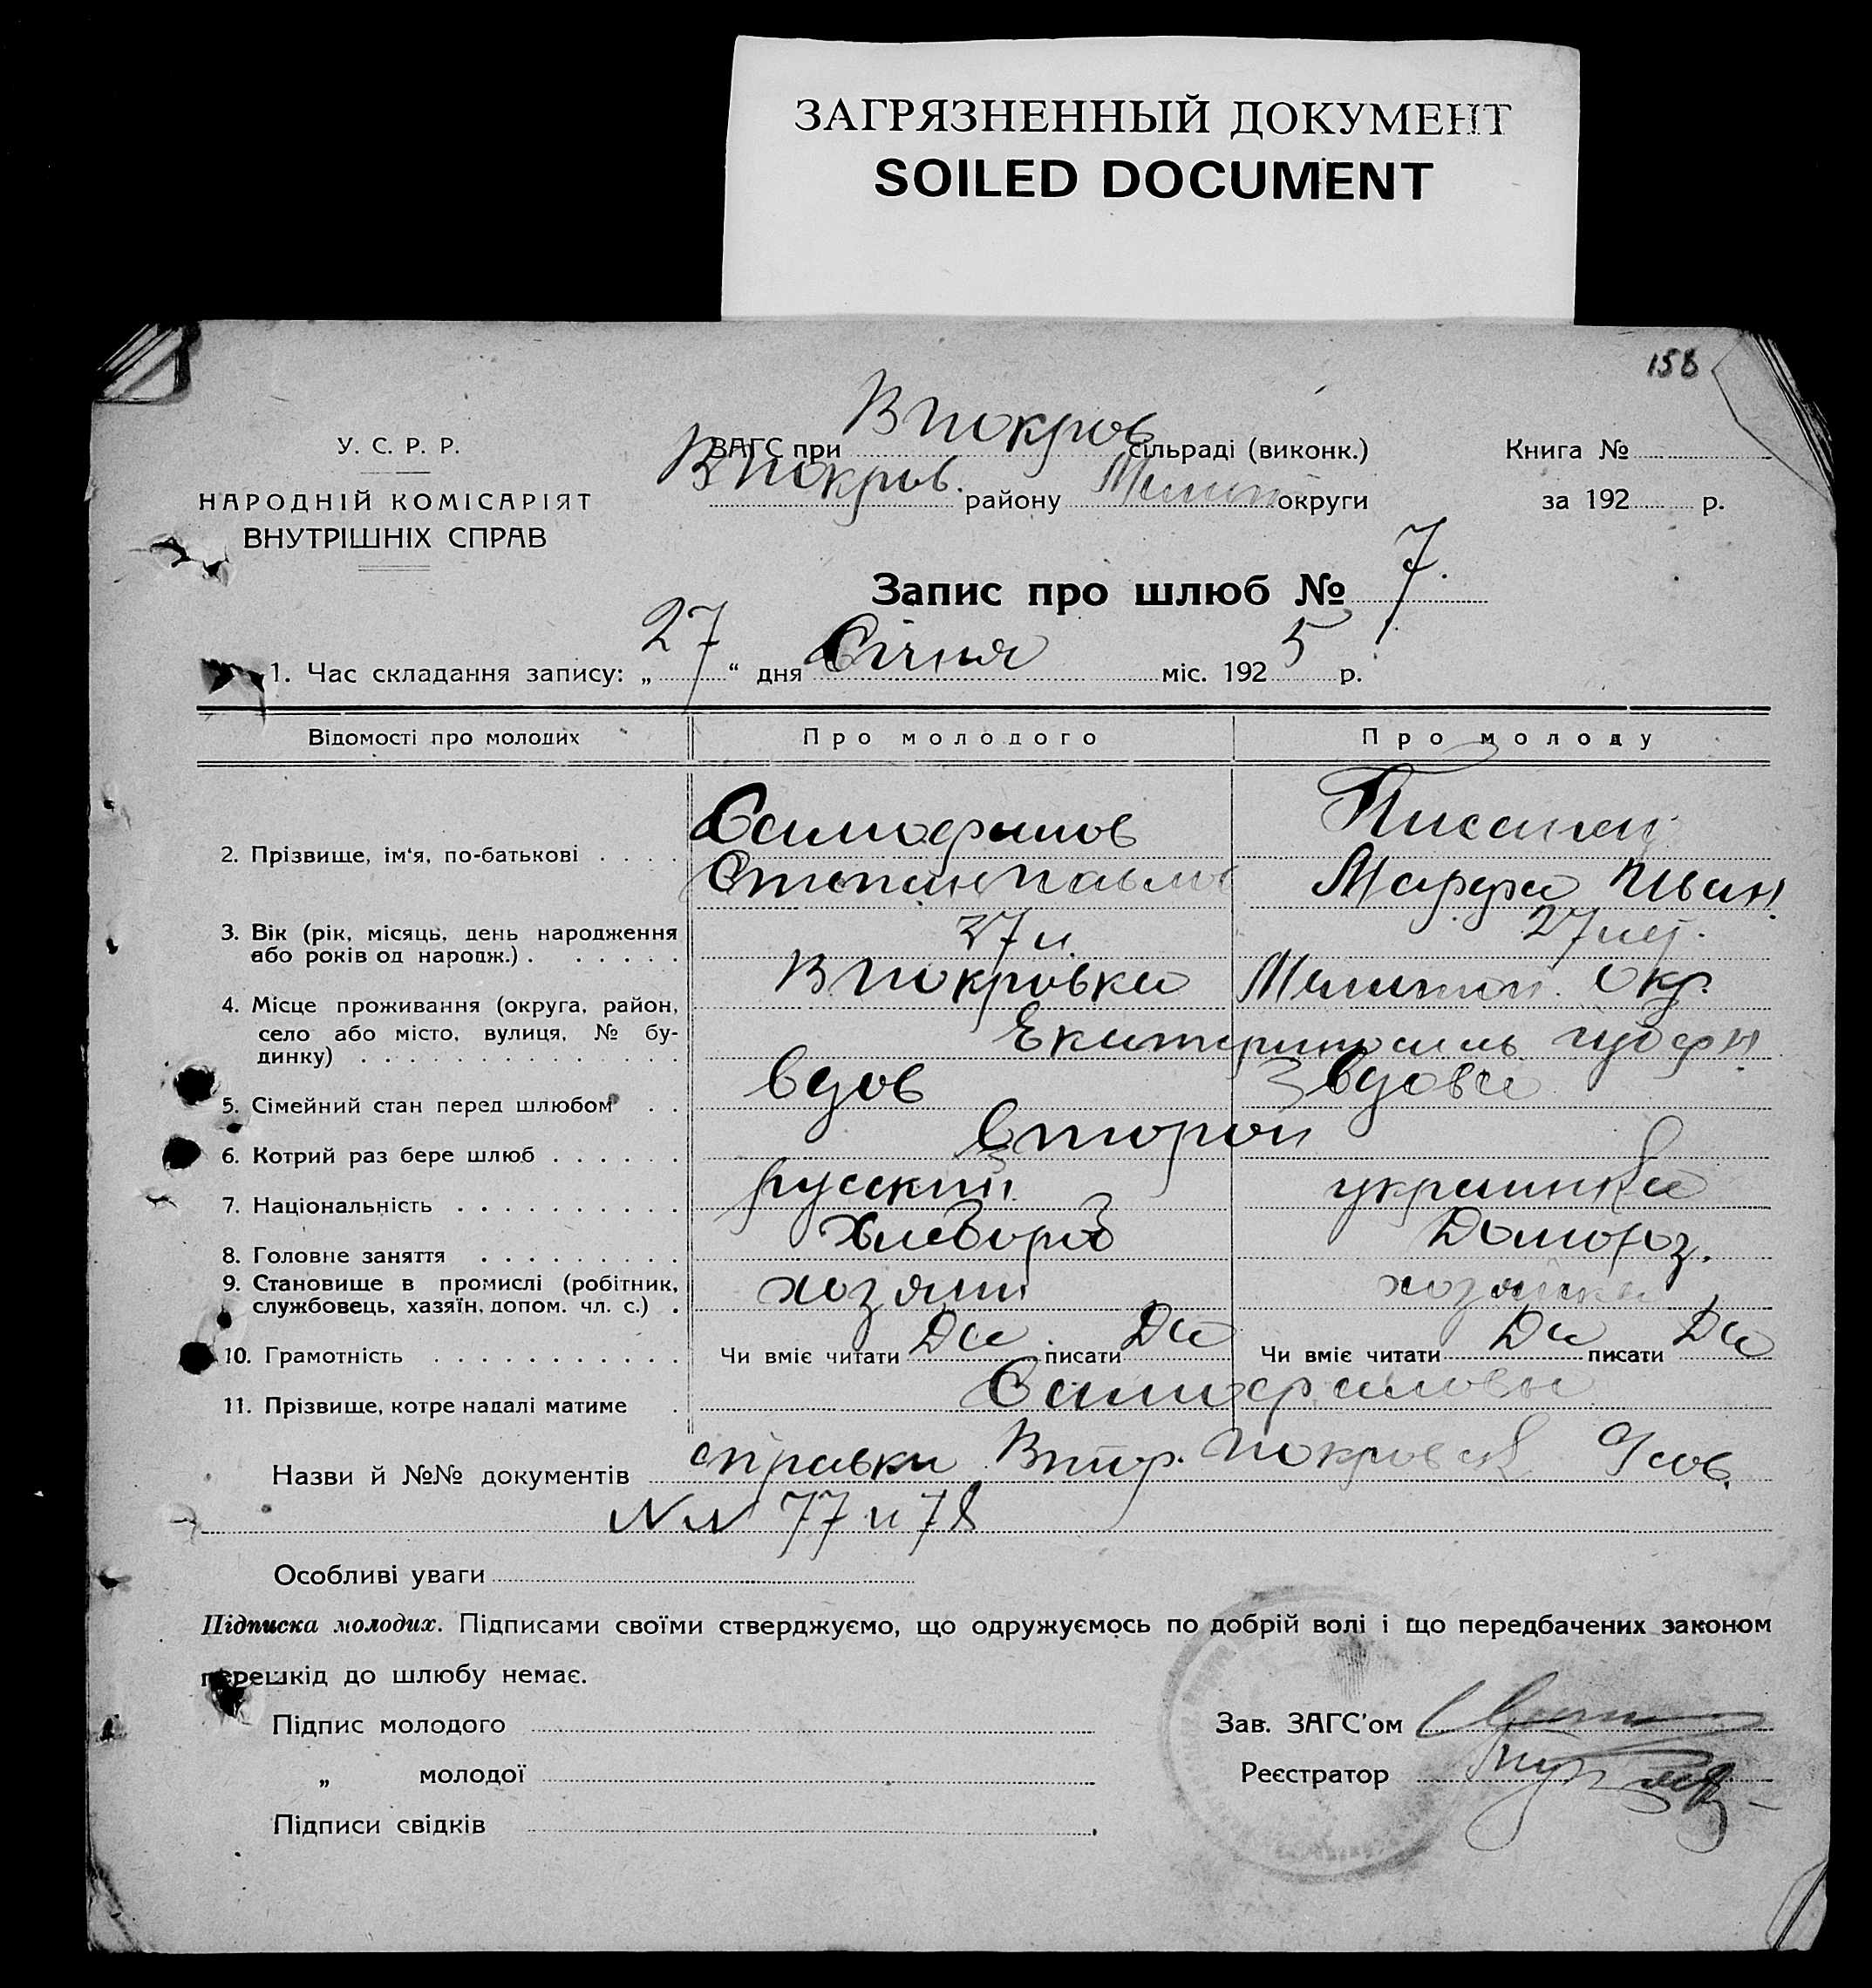 ЗАГРЯЗНЕННЫЙ ДОКУМЕНТ
SOILED DOCUMENT
158
У. С. Р. Р.
НАРОДНІЙ КОМІСАРІЯТ
ВНУТРІШНІХ СПРАВ
ВАГС при В Покров сільраді (виконк.)
В Покров. району округи
Книга №
за 192 р.
Запис про шлюб № 7.
1. Час складання запису: „27“ дня Січня міс. 1925 р.
Відомості про молодих Про молодого Про молоду
2. Прізвище, ім‘я, по-батькові
Степан Павлов Марфа Иван.
3. Вік (рік, місяць, день народження
або років од народж.) 27
4. Місце проживання (округа, район, В Покровка Мелитоп. Окр.
село або місто, вулиця, № бу-
динку) Екатеринославь губерн
5. Сімейний стан перед шлюбом вдов вдова
6. Котрий раз бере шлюб второй
7. Національність русский украинка
8. Головне заняття Хлебороб Домохоз.
9. Становище в промислі (робітник,
службовець, хазяїн, допом. чл. с.) хозяин хозяйка
10. Грамотність Чи вміє читати Да писати Да Чи вміє читати Да писати Да
11. Прізвище, котре надалі матиме
Назви й №№ документів справки Втор. Покровск
NN 77 и 78
Особливі уваги
Підписка молодих. Підписами своїми стверджуємо, що одружуємось по добрій волі і що передбачених законом
перешкід до шлюбу немає.
Підпис молодого
„ молодої
Підписи свідків
Зав. ЗАГС'ом
Реєстратор